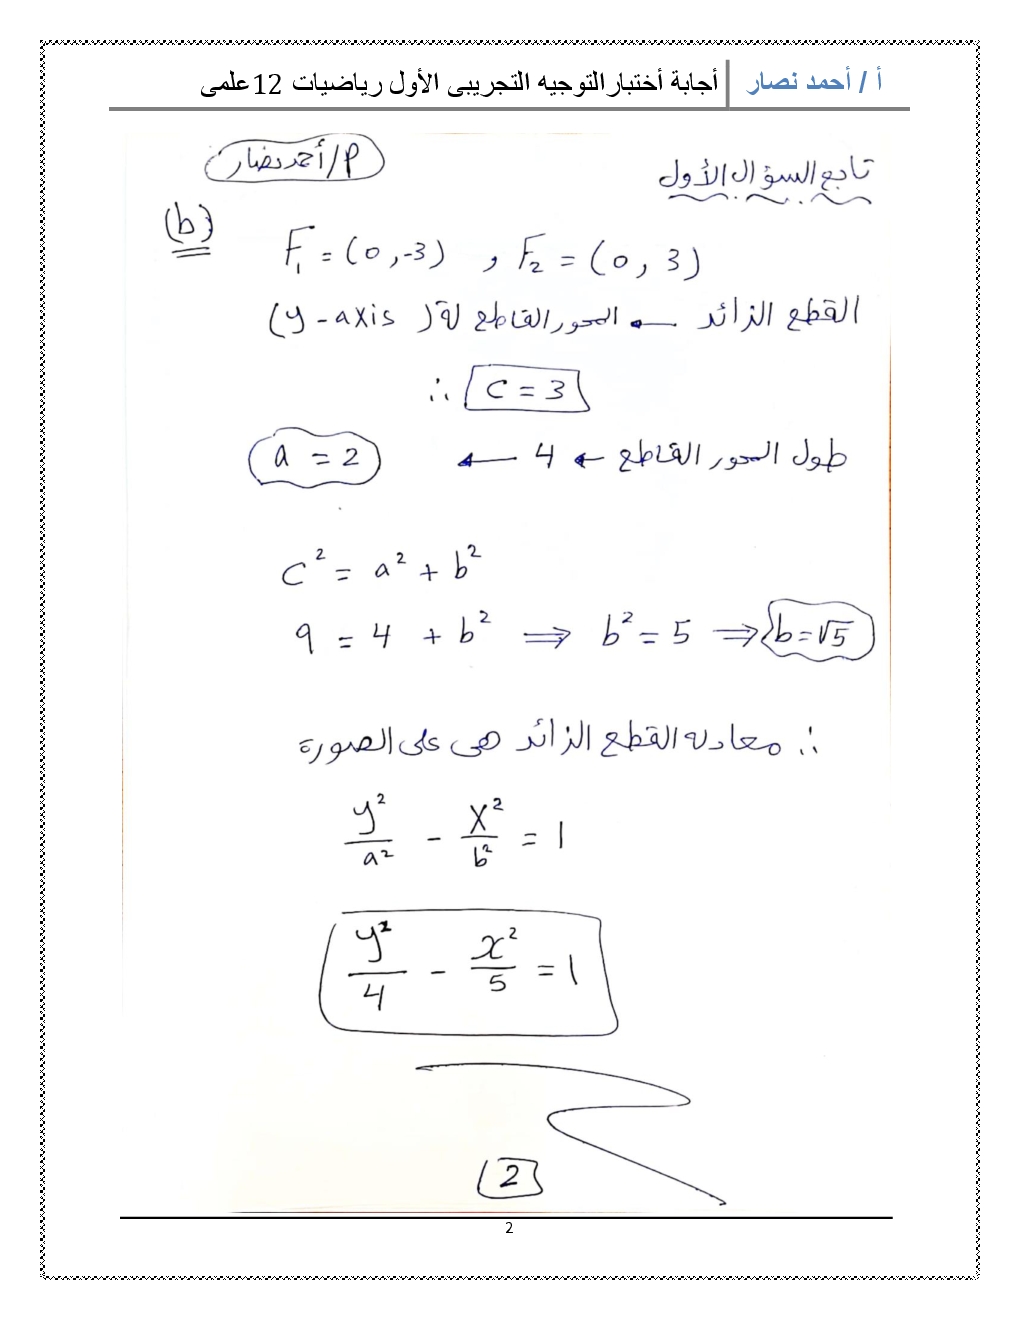 أ / أحمد نصار أجابة أختبار التوجيه التجريبى الأول رياضيات 12 علمى
أ/أحمد نصار
تابع السؤال الأول
(b)
F₁ = (0, -3) , F₂ = (0, 3)
القطع الزائد ← المحور القاطع له (y-axis)
∴ C = 3
طول المحور القاطع ← 4 ← a = 2
c² = a² + b²
9 = 4 + b² ⟹ b² = 5 ⟹ b = √5
∴ معادلة القطع الزائد هى على الصورة
y²/a² - x²/b² = 1
y²/4 - x²/5 = 1
2
2